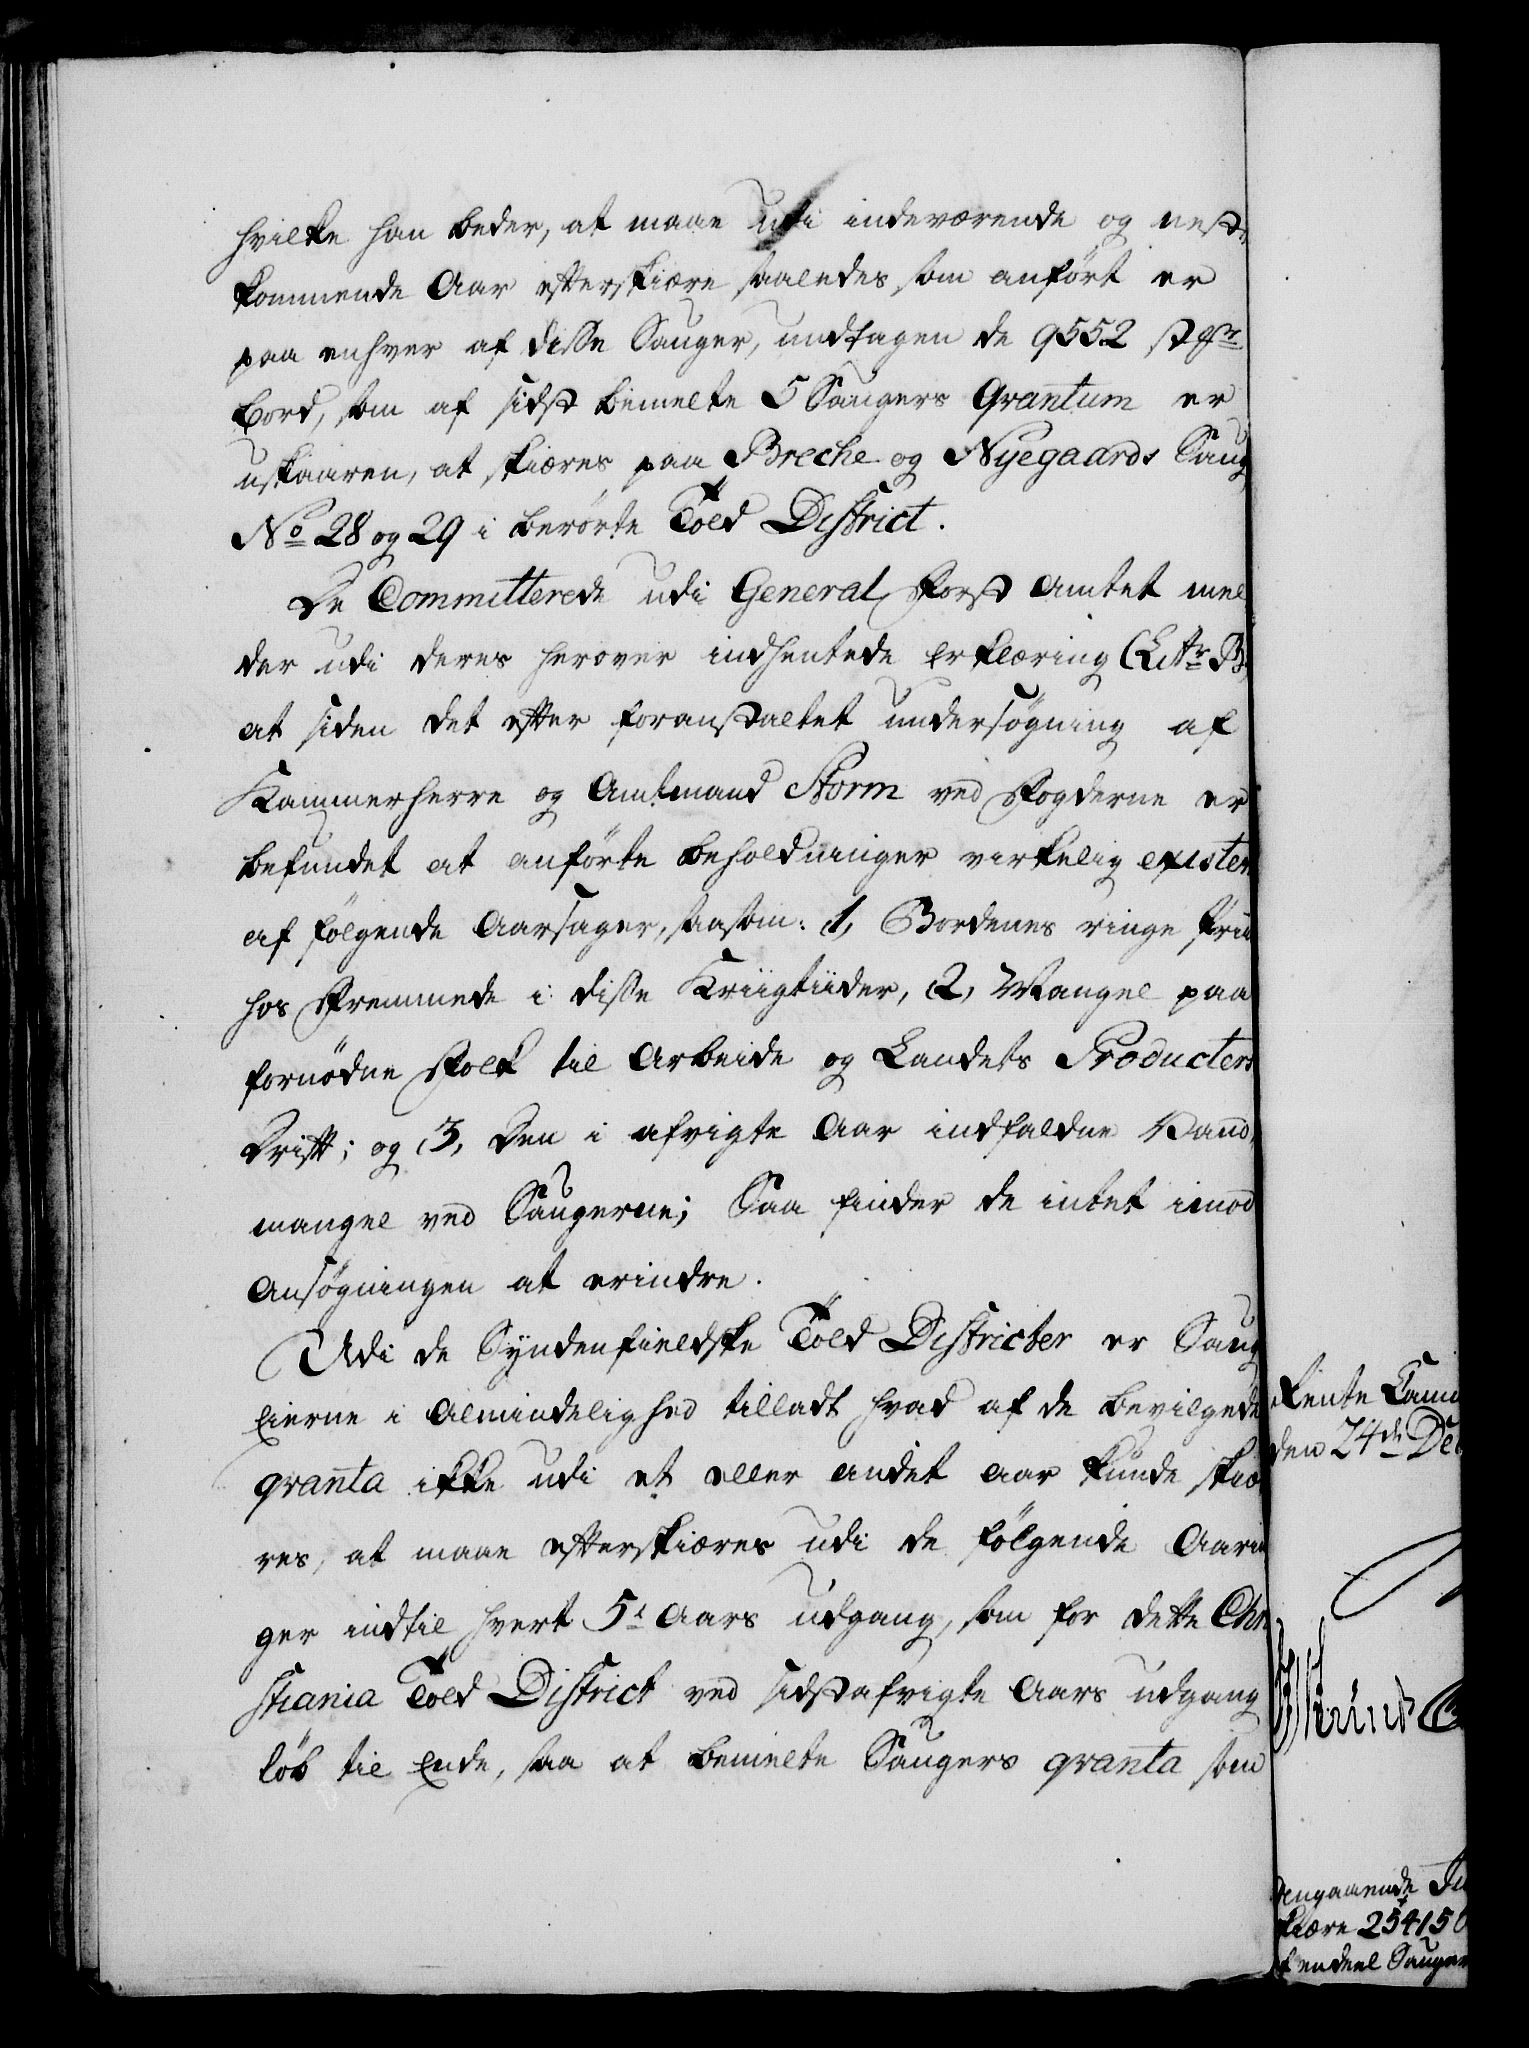 hvilke han beder, at maae udi indeværende og nest¬
kommende Aar efterskiære saaledes som anført er
paa enhver af disse Sauger, undtagen de 9552 st
Bord, som af sidst bemelte 5 Saugers Qvantum er
uskaaren, at skiæres paa Breche og Nyegaards Saug
No 28 og 29 i berørte Told District.
De Committerede udi General Forst Amtet mel
der udi deres herover indhentede Erklæring (Litr B.
at siden det efter foranstaltet undersøgning af
Kammerherre og Amtmand Storm ved Fogderne er
befundet at anførte beholdninger virkelig existere
af følgende Aarsager, saasom: 1, Bordenes ringe Priis
hos Fremmede i disse Kriigtiider, 2, Mangel paa
fornødne Folk til Arbeide og Landets Producters
Drift; og 3, Den i afvigte Aar indfaldne Vand¬
mangel ved Saugerne; Saa finder de intet imod
Ansøgningen at erindre.
Udi de Syndenfieldske Told Districter er Saug
Eierne i Almindelighed tilladt hvad af de bevilgede
qvanta ikke udi et eller andet Aar kunde skiæ
res, at maae efterskiæres udi de følgende Aarin
ger indtil hvert 5te Aars udgang, som for dette Chri
stiania Told District ved sidstafvigte Aars udgang
løb til Ende, saa at bemelte Saugers qvanta som
Rente Cam
den 24de De
angaaende
skiære 254150
af endeel Sauger